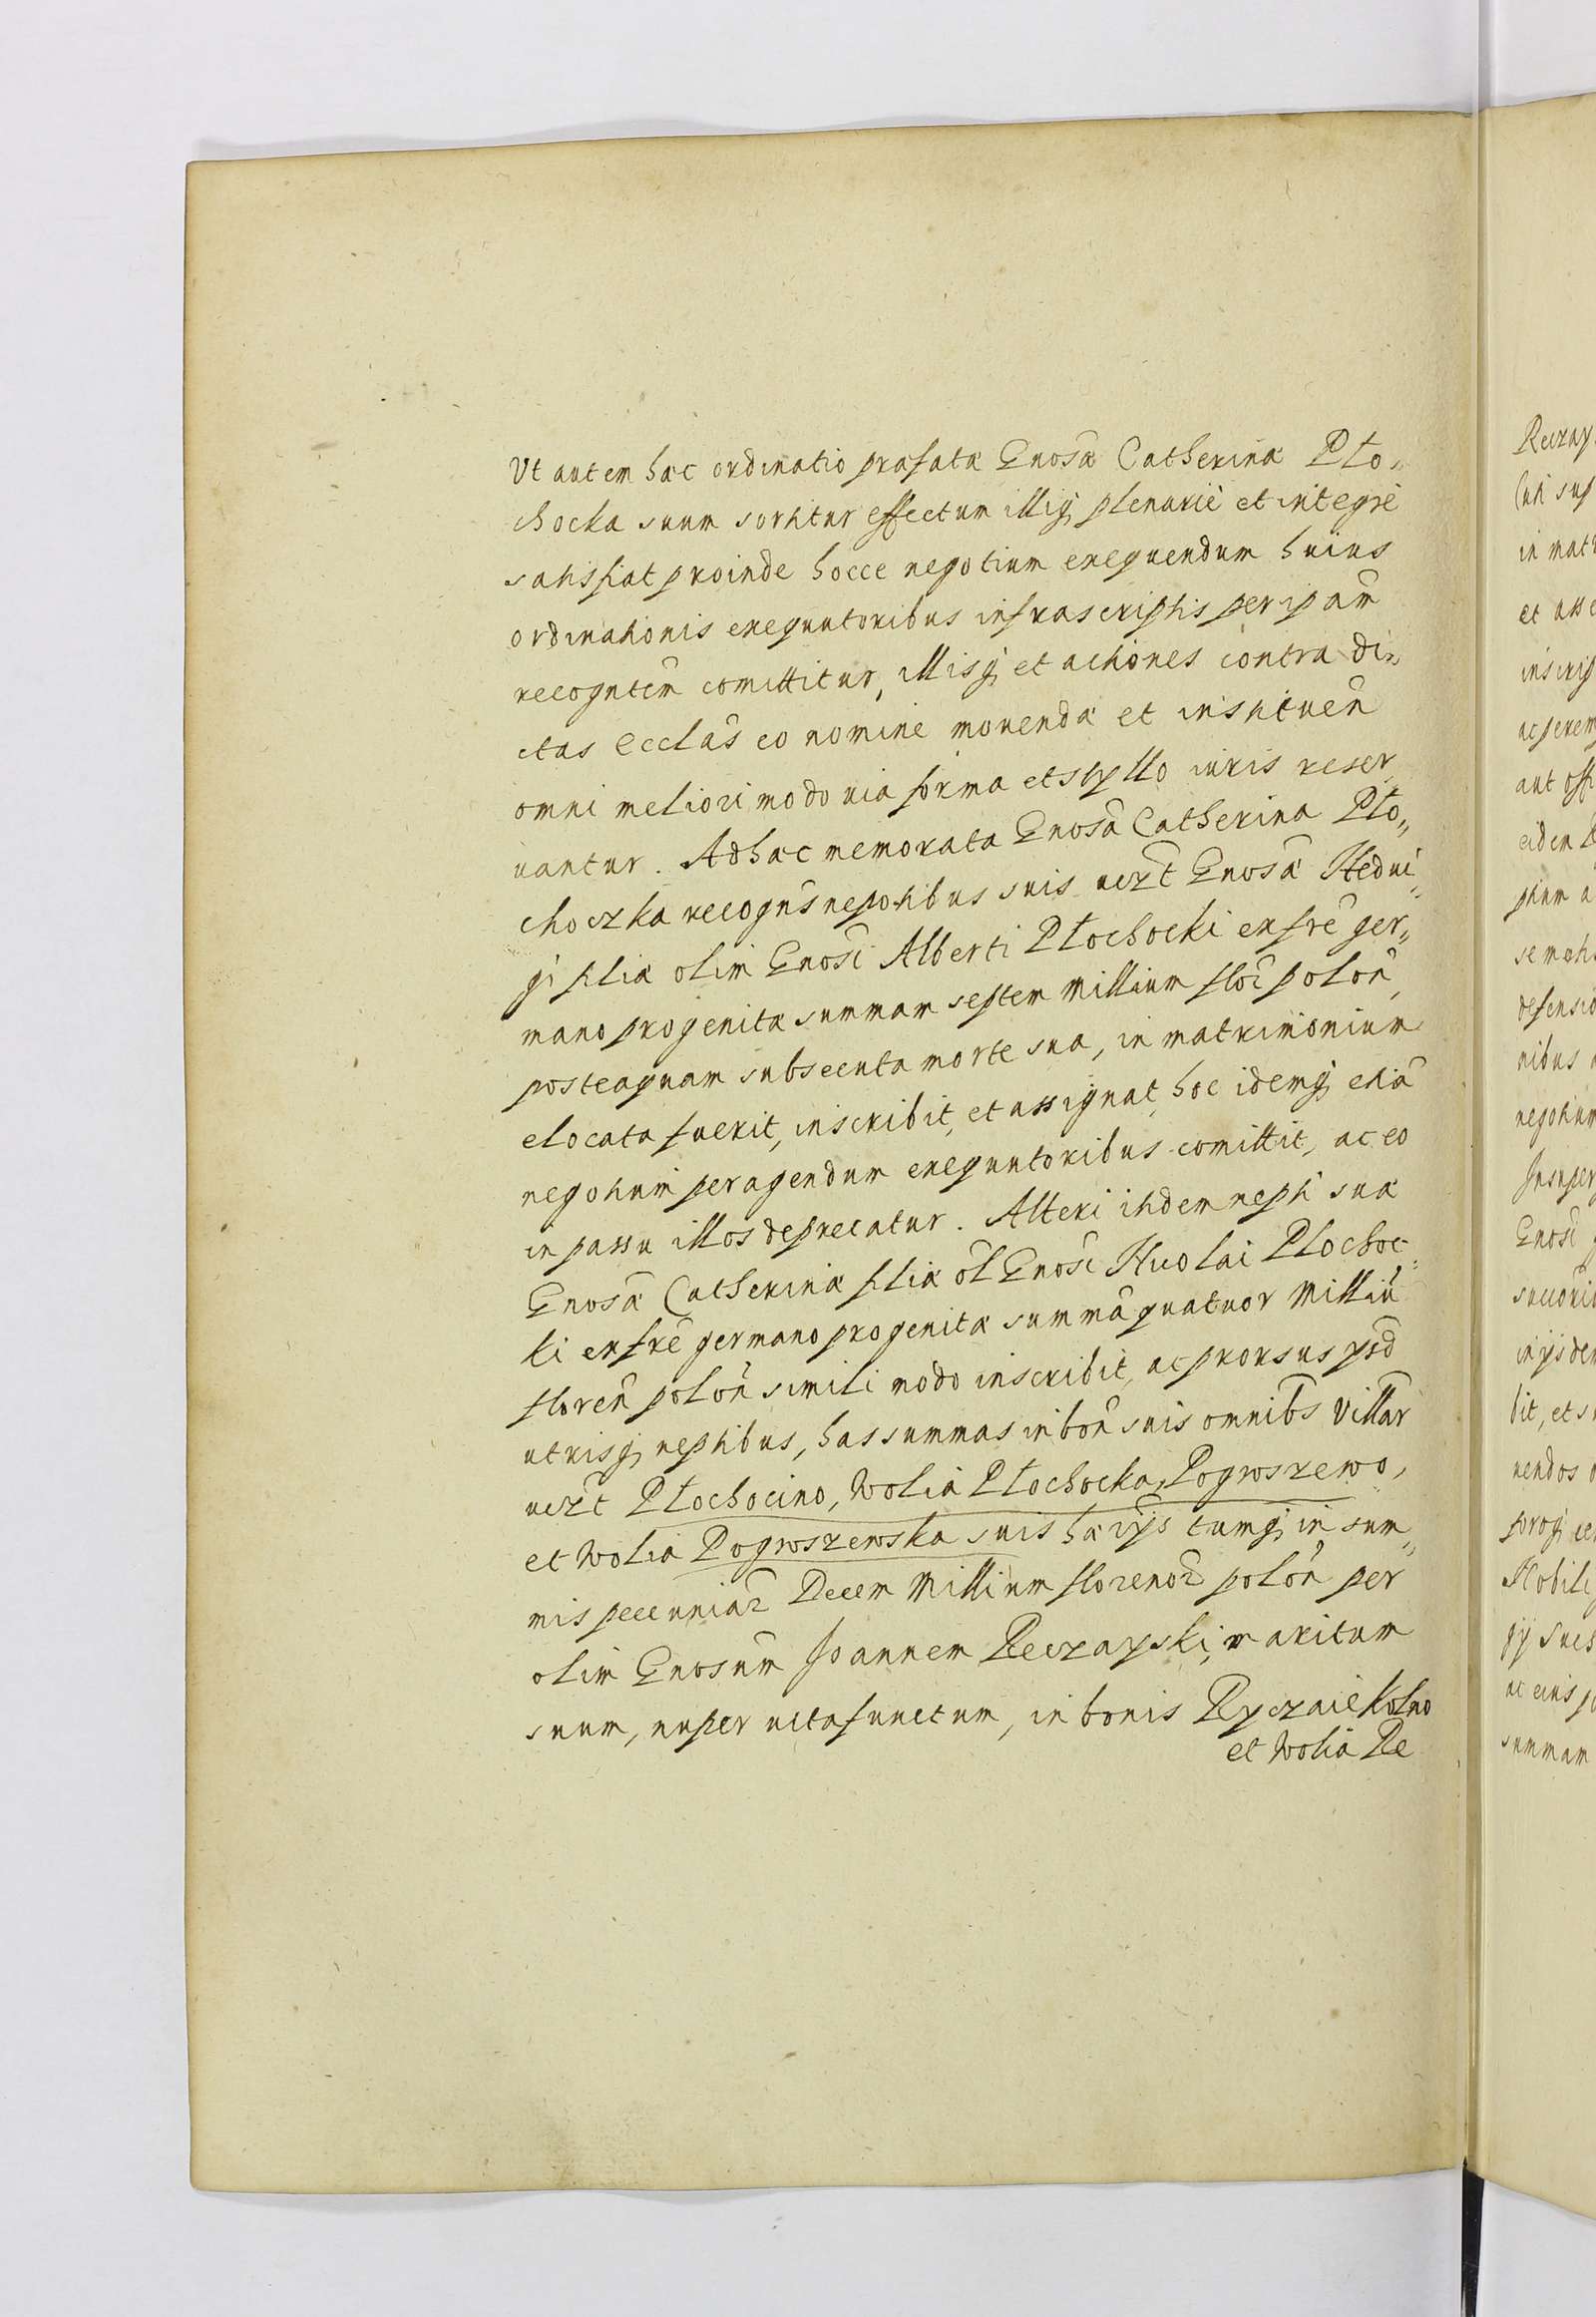 Ut autem hæc ordinatio præfatæ Gnosæ Catherinæ Pło„
chocka suum sortitur effectum illiq; plenarie et integre
satisfiat proinde hocce negotium exequendum huius
ordinationis exequutoribus infrascriptis per ipam
recogntem comittitur, illisq; et actiones contra di„
ctas Ecclas eo nomine mouendæ et instituen
omni meliori modo uia forma et styllo iuris reser„
uantur. Ad hæc memorata Gnosa Catherina Pło„
choczka recogns nepotibus suis uczt Gnosæ Hedui„
gi filiæ olim Gnosi Alberti Płochocki ex fre ger„
mano progenitæ summam septem Millium flor polon,
posteaquam subsecuta morte sua, in matrimonium
elocata fuerit, inscribit, et assignat, hoc idemq; etiā
negotium peragendum exequutoribus comittit, ac eo
in passu illos deprecatur. Alteri itidem nepti suæ
Gnosæ Catherinæ filiæ ol Gnosi Nicolai Płochoc„
ki ex fre germano progenitæ summā quatuor Milliū
floren polon simili modo inscribit, ac prorsus ysd
utrisq; neptibus, has summas in bon suis omnibs Villar
uczt Płochocino, Wolia Płochocka, Pogroszewo,
et Wolia Pogroszewska suis hæ ijs tumq; in sum„
mis pecuniar Decem Millium florenor polon per
olim Gnosum Joannem Reczayski, maritum
suum, nuper uita functum, in bonis Ryczaie Kolno
et Wolia Re
Reczay
in mat
et asse
inscrip
ac perem
aut offi
eidem
defensio
nibus
negotium
Insuper
Gnosi
bit, et s
Nobili
ac eius
summam